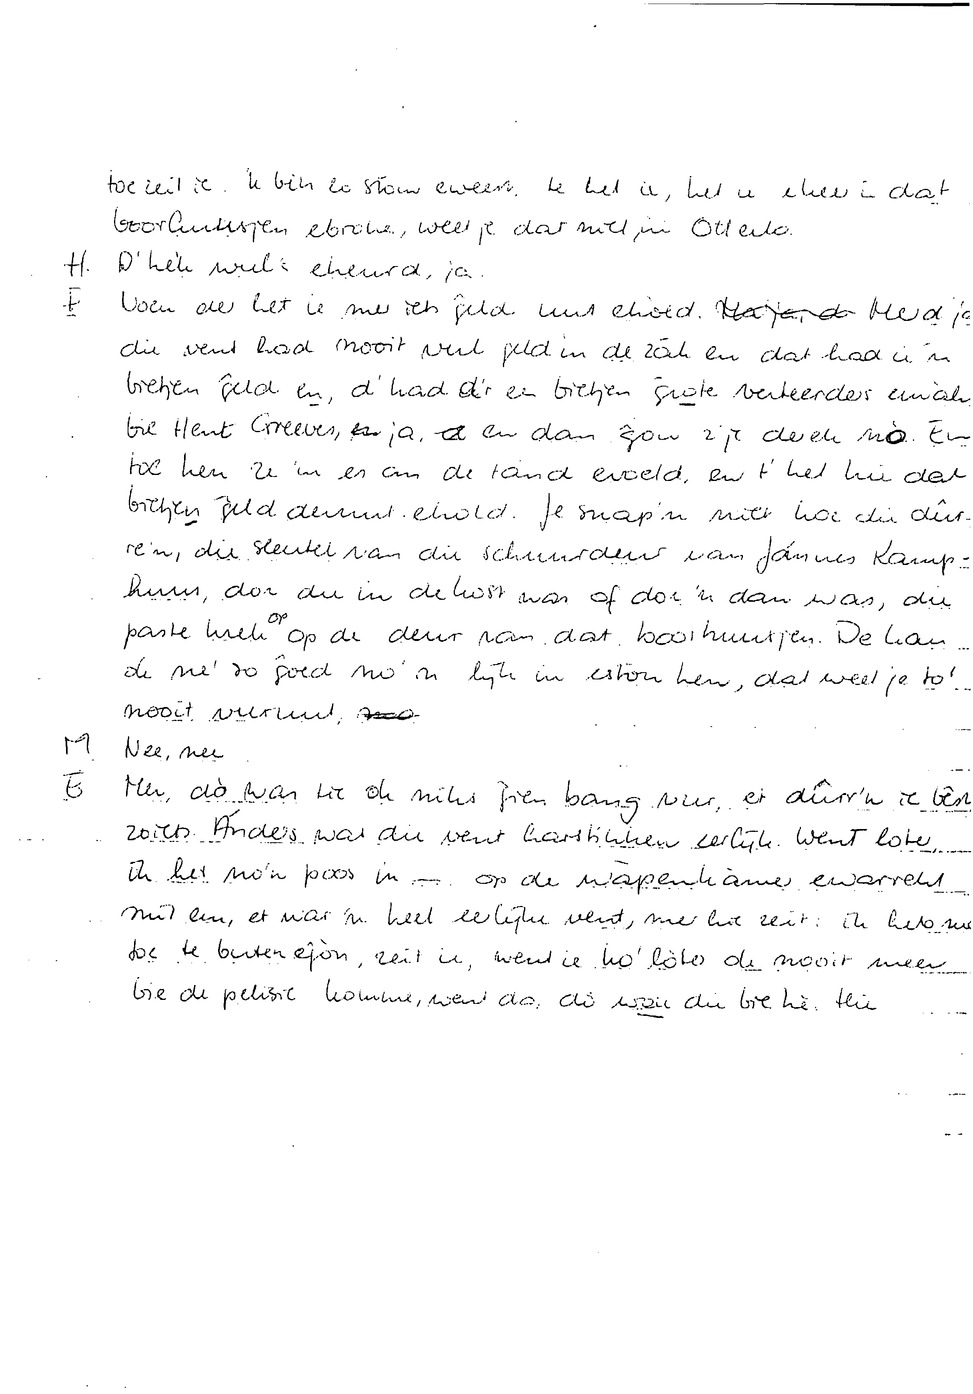 toe zeit ie. 'k bin zo stom eweest, te het ie, het ie in dat
boorhuusjen ebroke, weet je dat niet, in Otterlo.
H. D'hek wul's eheurd, ja.
E die het ie me zich geld uut ehoald. Merd ja
die vent had nooit veul geld in de zak en dat had ie 'n
bietjen geld en, d'had d'r en bietjen grote verteerders
bie Hent Greeves, ja, en dan gon z'je deek no. En
toe hen ze 'm es an de tand evoeld, en t' het hie dat
bietjen geld deruut ehold. Je snap'n niet hoe die dûr-
re'n, die sleutel van die schuurdeur van Jánnes Kamp-
huus, dor die in de host was of doe 'n dan was, die
paste krek op op de deur van dat boorhuusjen. De kan
de me' zo goed mo' 'n lijk in estôn hen, dat weet je to'
nooit vuruut,
M Nee, nee
E Mer, dò was hie ok niks gien bang veur, et dûrr'n ie
zoiets. Ánders was die vent harstikken eerlijk. Went lote,
ik het no'n poos in — op de wàpenkàmer ewarrekt
mit em, et war 'n heel eerlijke vent, mer hie zeit: ik heb me
toe te buten egôn, zeit ie, went ie ho' lôter de nooit meer
bie de pelisie komme, went do, dò wou die bie hè. Hie